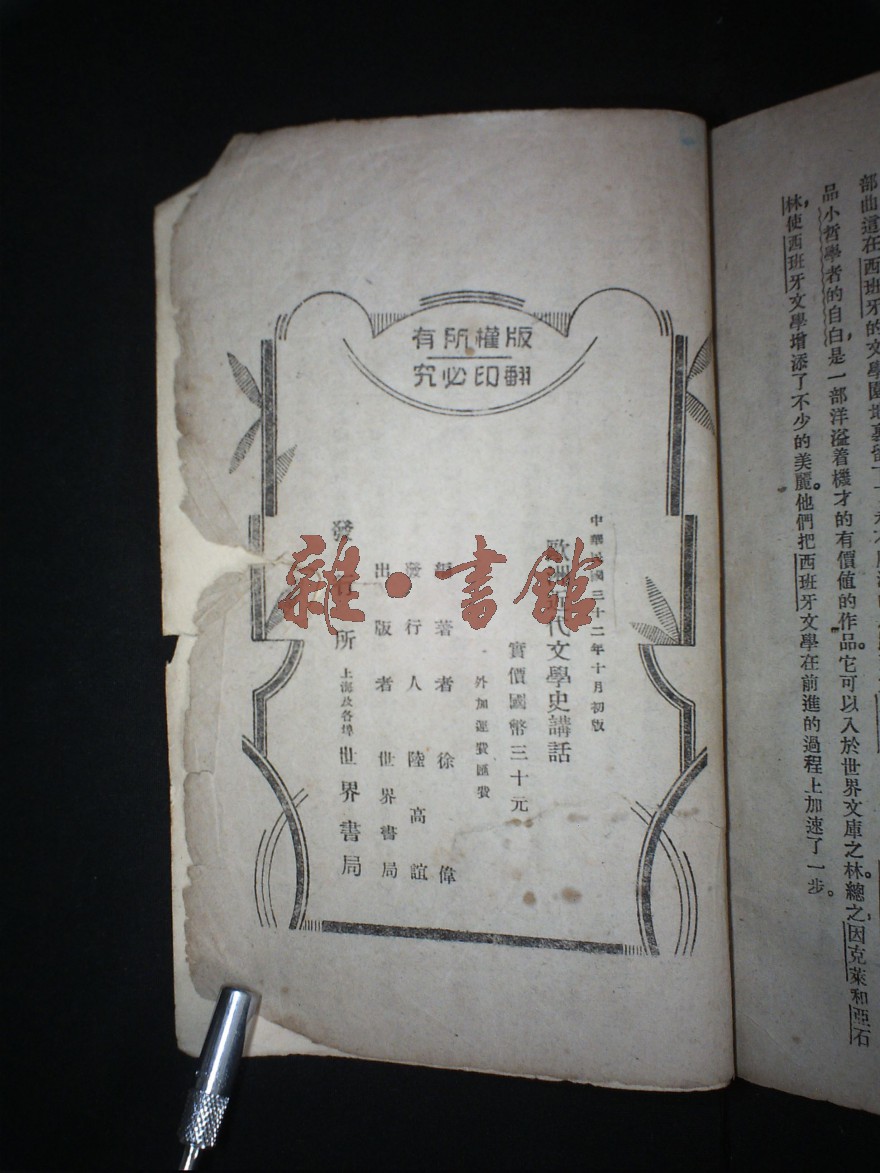 部曲這在西班牙的文學園地裏留下
品小哲學者的自白，是一部洋溢着機才的有價值的作品。它可以入於世界文庫之林。總之，因克萊和亞石
林，使西班牙文學增添了不少的美麗。他們把西班牙文學在前進的過程上加速了一步。
版權所有
翻印必究
中華民國三十二年十月初版
歐洲近代文學史講話
實價國幣三十元
外加運費匯費
編著者 徐偉
發行人 陸高誼
出版者 世界書局
發行所 上海及各埠 世界書局
雜·書館